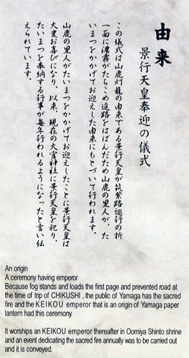 由来
景行天皇奉迎の儀式
この儀式は山鹿灯籠の由来である景行天皇が筑紫路巡行の折
一面に濃霧がたちこめ進路をはばんだため山鹿の里人が、た
いまつをかかげてお迎えした由来にもとづいて行われます。
山鹿の里人がたいまつをかかげてお迎えしたことに景行天皇は
大変お喜びになり、以来、現在の大宮神社に景行天皇を祀り、
たいまつを奉納する行事が毎年行われるようになったと言い伝
えられています。
An origin
A ceremony having emperor
Because fog stands and loads the first page and prevented road at
the time of trip of CHIKUSHI , the public of Yamaga has the sacred
fire and the KEIKOU emperor that is an origin of Yamaga paper
lantern had this ceremony.
It worships an KEIKOU emperor thereafter in Oomiya Shinto shrine
and an event dedicating the sacred fire annually was to be carried out
and it is conveyed.